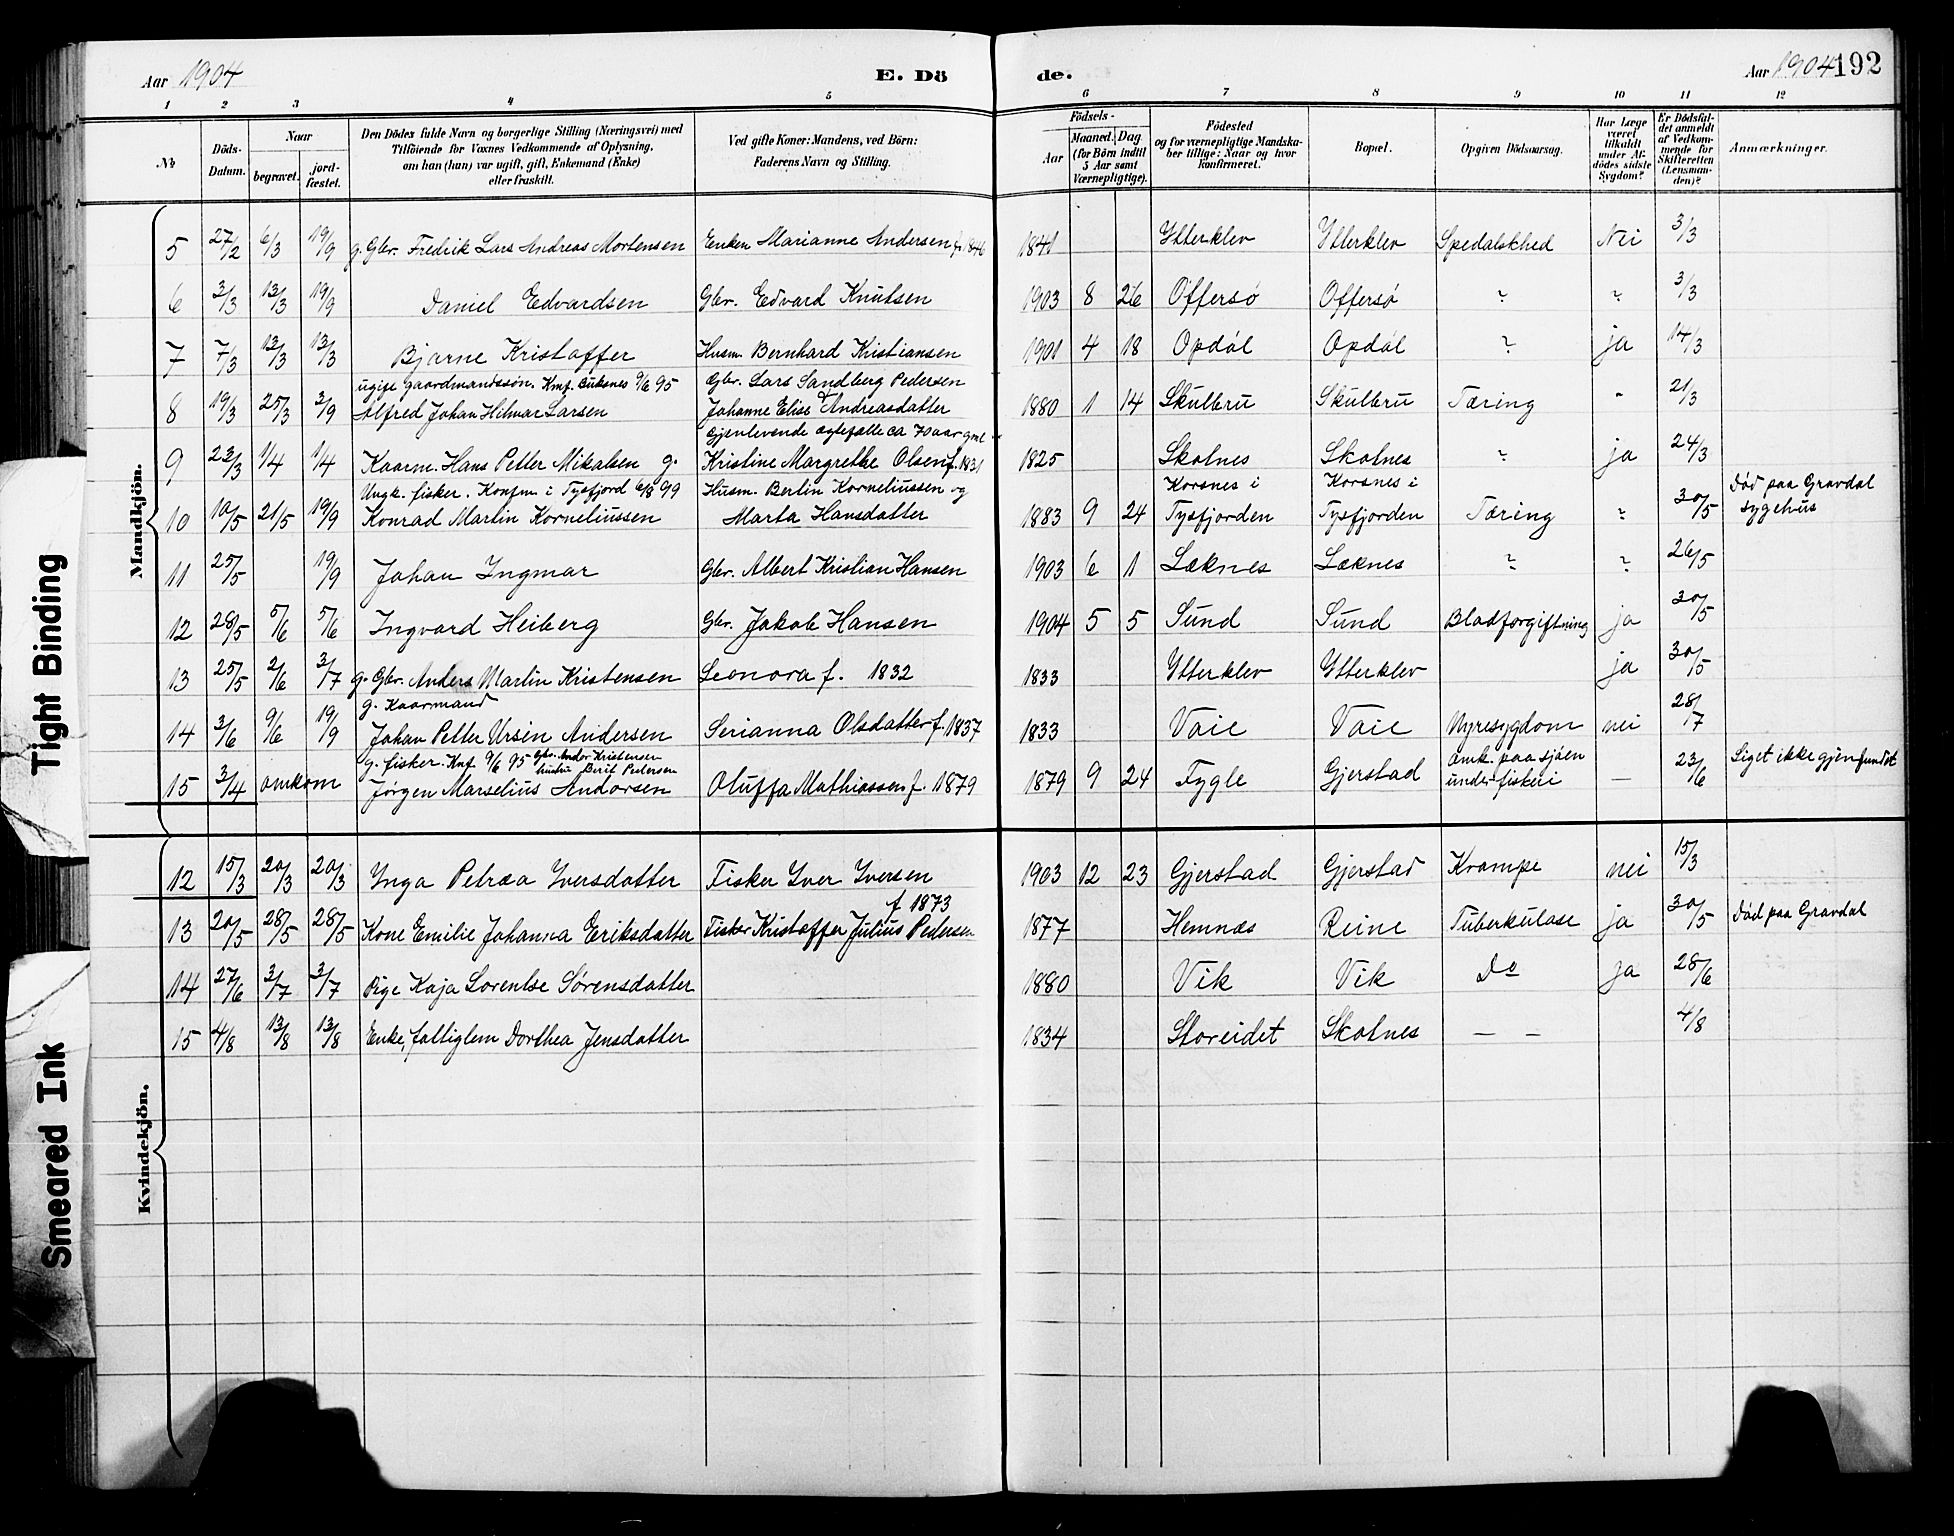 Aar 1904
E. Dö
de.
Aar 1904
192
1 2 3 4 5 6 7 8 9 10 11 12
№
Döds-Datum.
Naar
begravet.
jord-fæstet.
Den Dödes fulde Navn og borgerlige Stilling (Næringsvei) med
Tilföiende for Voxnes Vedkommende af Oplysning,
om han (hun) var ugift, gift, Enkemand (Enke)
eller fraskilt.
Ved gifte Koner: Mandens, ved Börn:
Faderens Navn og Stilling.
Födsels-
Aar
Maaned. Dag
(for Börn indtil
5 Aar samt
Værnepligtige).
Födested
og for værnepligtige Mandska-
ber tillige: Naar og hvor
konfirmeret.
Bopæl.
Opgiven Dödsaarsag.
Har Læge
været
tilkaldt
under Af-
dödes sidste
Sygdom?
Er Dödsfal-
det anmeldt
af Vedkom-
mende for
Skifteretten
(Lensman-
den)?
Anmærkninger.
Mandkjön.
5 27/2 6/3 19/9 g. Gbr. Fredrik Lars Andreas Mortensen Enken Marianne Andersen f. 1846 1841 Ytterklev Ytterklev Spedalskhed Nei 3/3
6 3/3 13/3 19/9 Daniel Edvardsen Gbr. Edvard Knutsen 1903 8 26 Offersø Offersø ? ? 3/3
7 7/3 13/3 13/3 Bjarne Kristoffer Husm. Bernhard Kristiansen 1901 4 18 Opdøl Opdøl ? ja 14/3
ugift gaardmandssøn. Knf. Buksnes 9/6 95 Gbr. Lars Sandberg Pedersen
8 19/3 25/3 3/9 Alfred Johan Hilmar Larsen Johanne Elise Andreasdatter 1880 1 14 Skulbru Skulbru Tæring - 21/3
Gjenlevende ægtefælle ca 70 aar gml
9 23/3 1/4 1/4 Kaarm. Hans Petter Mikalsen g. Kristine Margrethe Olsen f. 1831 1825 Skotnes Skotnes ? ja 24/3
Ungk. fisker. Konfm. i Tysfjord 6/8 99 Husm. Berlin Korneliussen og Korsnes i Korsnes i Død paa Gravdal
10 10/5 21/5 19/9 Konrad Martin Korneliussen Marta Hansdatter 1883 9 24 Tysfjorden Tysfjorden Tæring ? 30/5 sygehus
11 25/5 19/9 Johan Ingmar Gbr. Albert Kristian Hansen 1903 6 1 Læknes Læknes ? ? 26/5
12 28/5 5/6 5/6 Ingvard Heiberg Gbr. Jakob Hansen 1904 5 5 Sund Sund Blodforgiftning ja 30/5
13 25/5 2/6 3/7 g. Gbr. Anders Martin Kristensen Leonora f. 1832 1833 Ytterklev Ytterklev ja 30/5
g. Kaarmand
14 3/6 9/6 19/9 Johan Petter Ursin Andersen Serianna Olsdatter f. 1837 1833 Voie Voie Nyresygdom nei 28/7
g. fisker. Knf. 9/6 95 Gbr. Andor Kristensen
hustru Berit Pedersen omk. paa sjøen Liget ikke gjenfundet
15 3/4 omkom Jørgen Marselius Andorsen Oluffa Mathiassen f. 1879 1879 9 24 Fygle Gjerstad under fiskeri — 23/6
Kvindekjön.
12 15/3 20/3 20/3 Ynga Petræa Iversdatter Fisker Iver Iversen 1903 12 23 Gjerstad Gjerstad Krampe nei 15/3
f 1873
13 20/5 28/5 28/5 Kone Emilie Johanna Eriksdatter Fisker Kristoffer Julius Pedersen 1877 Hemnæs Reine Tuberkulose ja 30/5 Død paa Gravdal
14 27/6 3/7 3/7 Pige Kaja Lorentse Sørensdatter 1880 Vik Vik Do ja 28/6
15 4/8 13/8 13/8 Enke, fattiglem Dorthea Jensdatter 1834 Storeidet Skotnes — — 4/8
Tight Binding
Smeared Ink